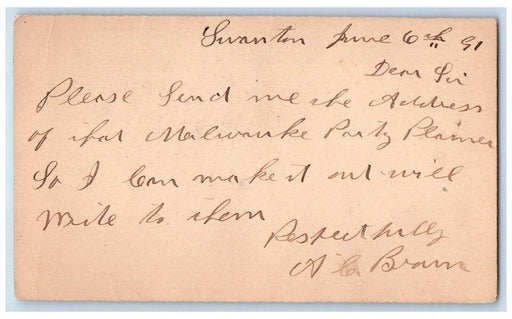 Swanton June 6th 91
Dear Sir
Please Send me the Address
of that Malwauke Party
So I Can make it out will
write to them
Respectfully
A C Brown